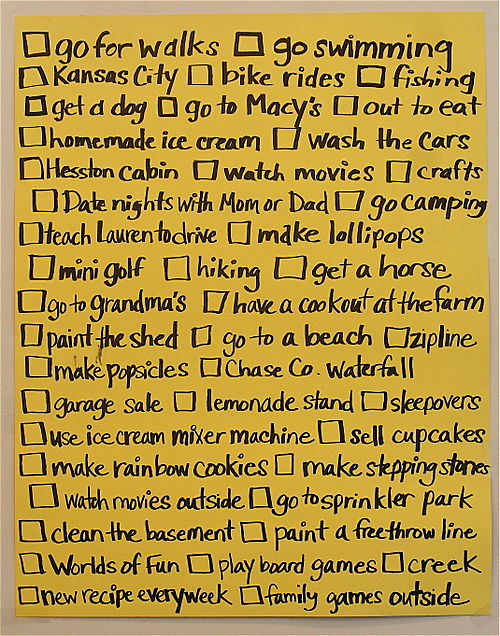 ☐ go for walks ☐ go swimming
☐ Kansas City ☐ bike rides ☐ fishing
☐ get a dog ☐ go to Macy's ☐ out to eat
☐ homemade ice cream ☐ wash the cars
☐ Hesston cabin ☐ watch movies ☐ crafts
☐ Date nights with Mom or Dad ☐ go camping
☐ teach Lauren to drive ☐ make lollipops
☐ mini golf ☐ hiking ☐ get a horse
☐ go to grandma's ☐ have a cookout at the farm
☐ paint the shed ☐ go to a beach ☐ zipline
☐ make popsicles ☐ Chase Co. waterfall
☐ garage sale ☐ lemonade stand ☐ sleepovers
☐ use ice cream mixer machine ☐ sell cupcakes
☐ make rainbow cookies ☐ make stepping stones
☐ watch movies outside ☐ go to sprinkler park
☐ clean the basement ☐ paint a free throw line
☐ Worlds of Fun ☐ play board games ☐ creek
☐ new recipe every week ☐ family games outside